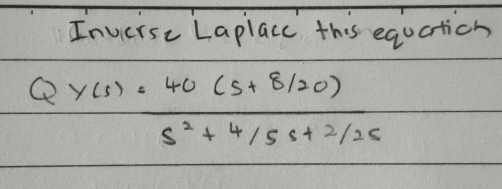 Inverse Laplace this equation
Q Y(s) = 40 (s + 8/20)
s² + 4/5 s + 2/25